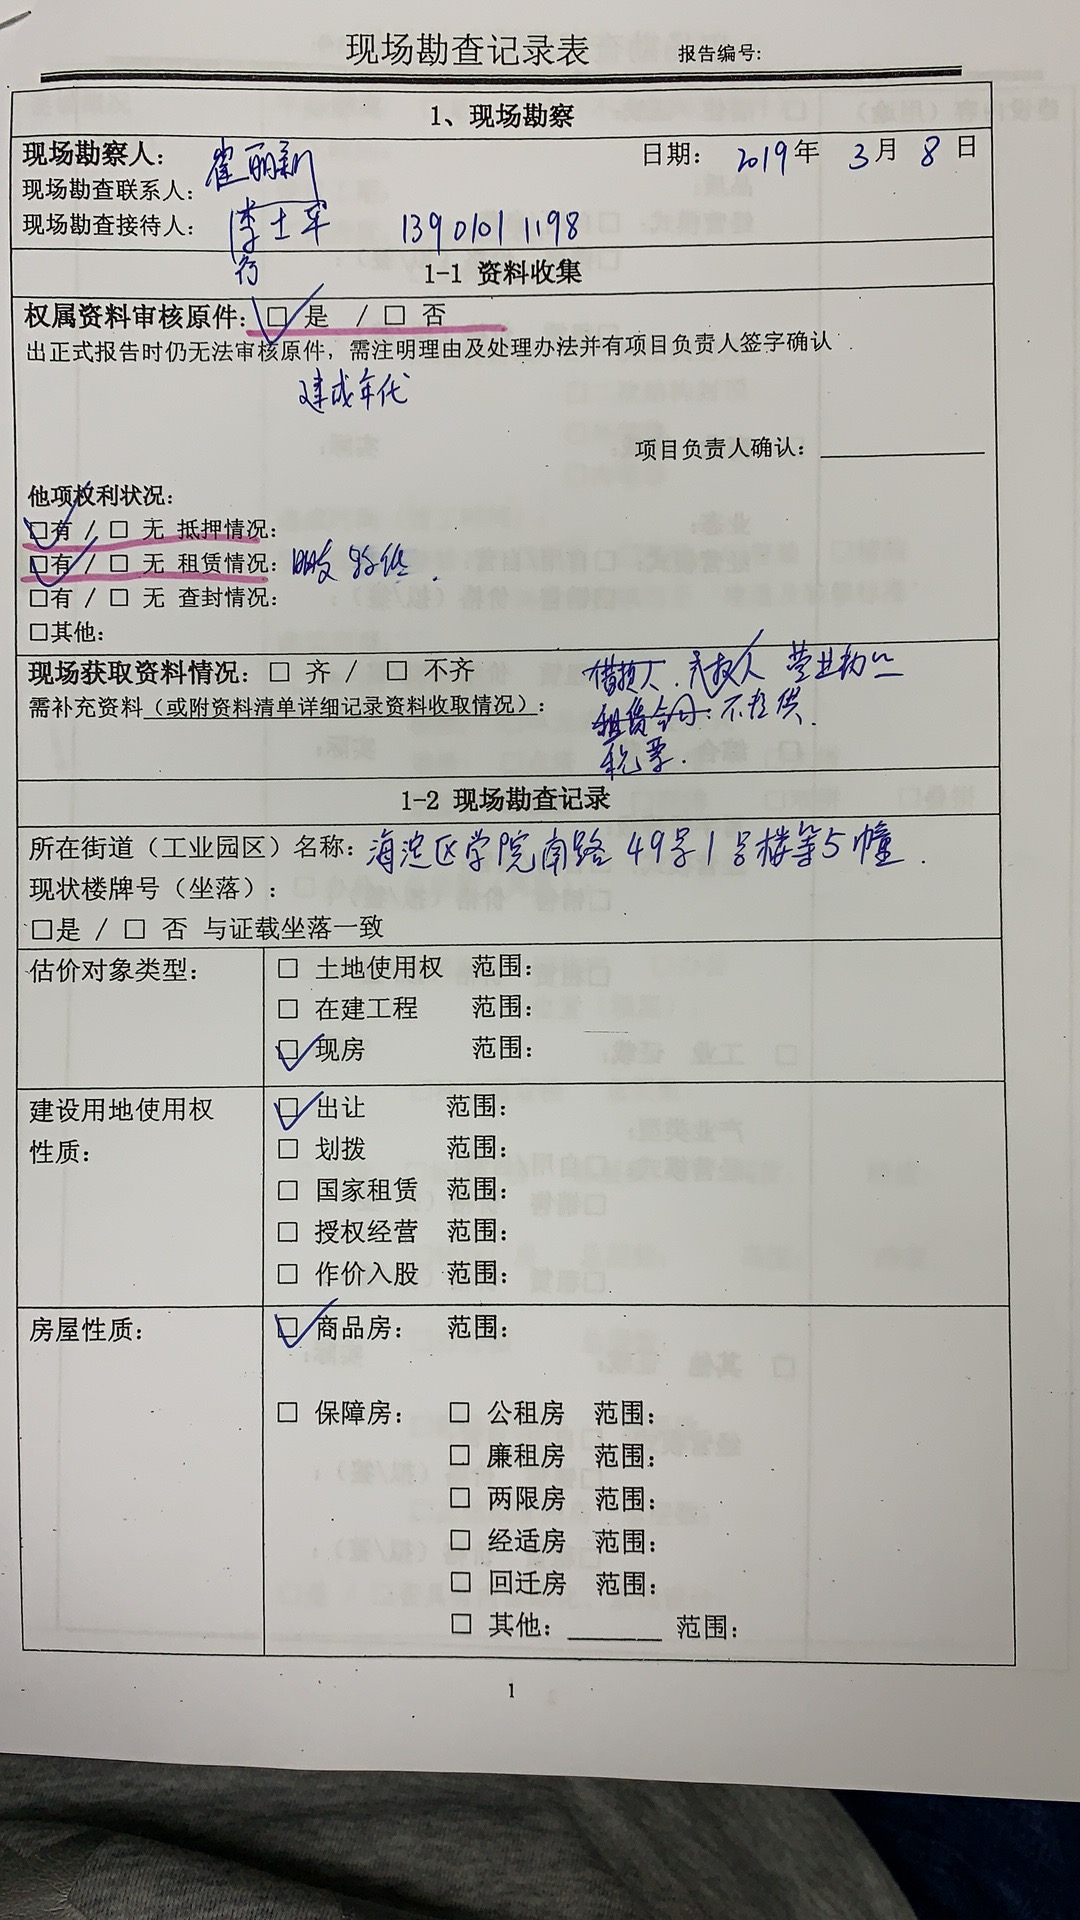 现场勘查记录表 报告编号:
1、现场勘察
现场勘察人: 崔丽新 日期: 2019年 3月 8日
现场勘查联系人:
现场勘查接待人: 李士军 13901011198
1-1 资料收集
权属资料审核原件: □ 是 / □ 否
出正式报告时仍无法审核原件, 需注明理由及处理办法并有项目负责人签字确认
建成年代
项目负责人确认:
他项权利状况:
□有 / □ 无 抵押情况:
□有 / □ 无 租赁情况:
□有 / □ 无 查封情况:
□其他:
现场获取资料情况: □ 齐 / □ 不齐 营业执照
需补充资料(或附资料清单详细记录资料收取情况): 租赁合同: 不提供.
税票.
1-2 现场勘查记录
所在街道(工业园区)名称: 海淀区学院南路49号1号楼等5幢.
现状楼牌号(坐落):
□是 / □ 否 与证载坐落一致
估价对象类型: □ 土地使用权 范围:
□ 在建工程 范围:
□ 现房 范围:
建设用地使用权 □ 出让 范围:
性质: □ 划拨 范围:
□ 国家租赁 范围:
□ 授权经营 范围:
□ 作价入股 范围:
房屋性质: □ 商品房: 范围:
□ 保障房: □ 公租房 范围:
□ 廉租房 范围:
□ 两限房 范围:
□ 经适房 范围:
□ 回迁房 范围:
□ 其他: ______ 范围:
1